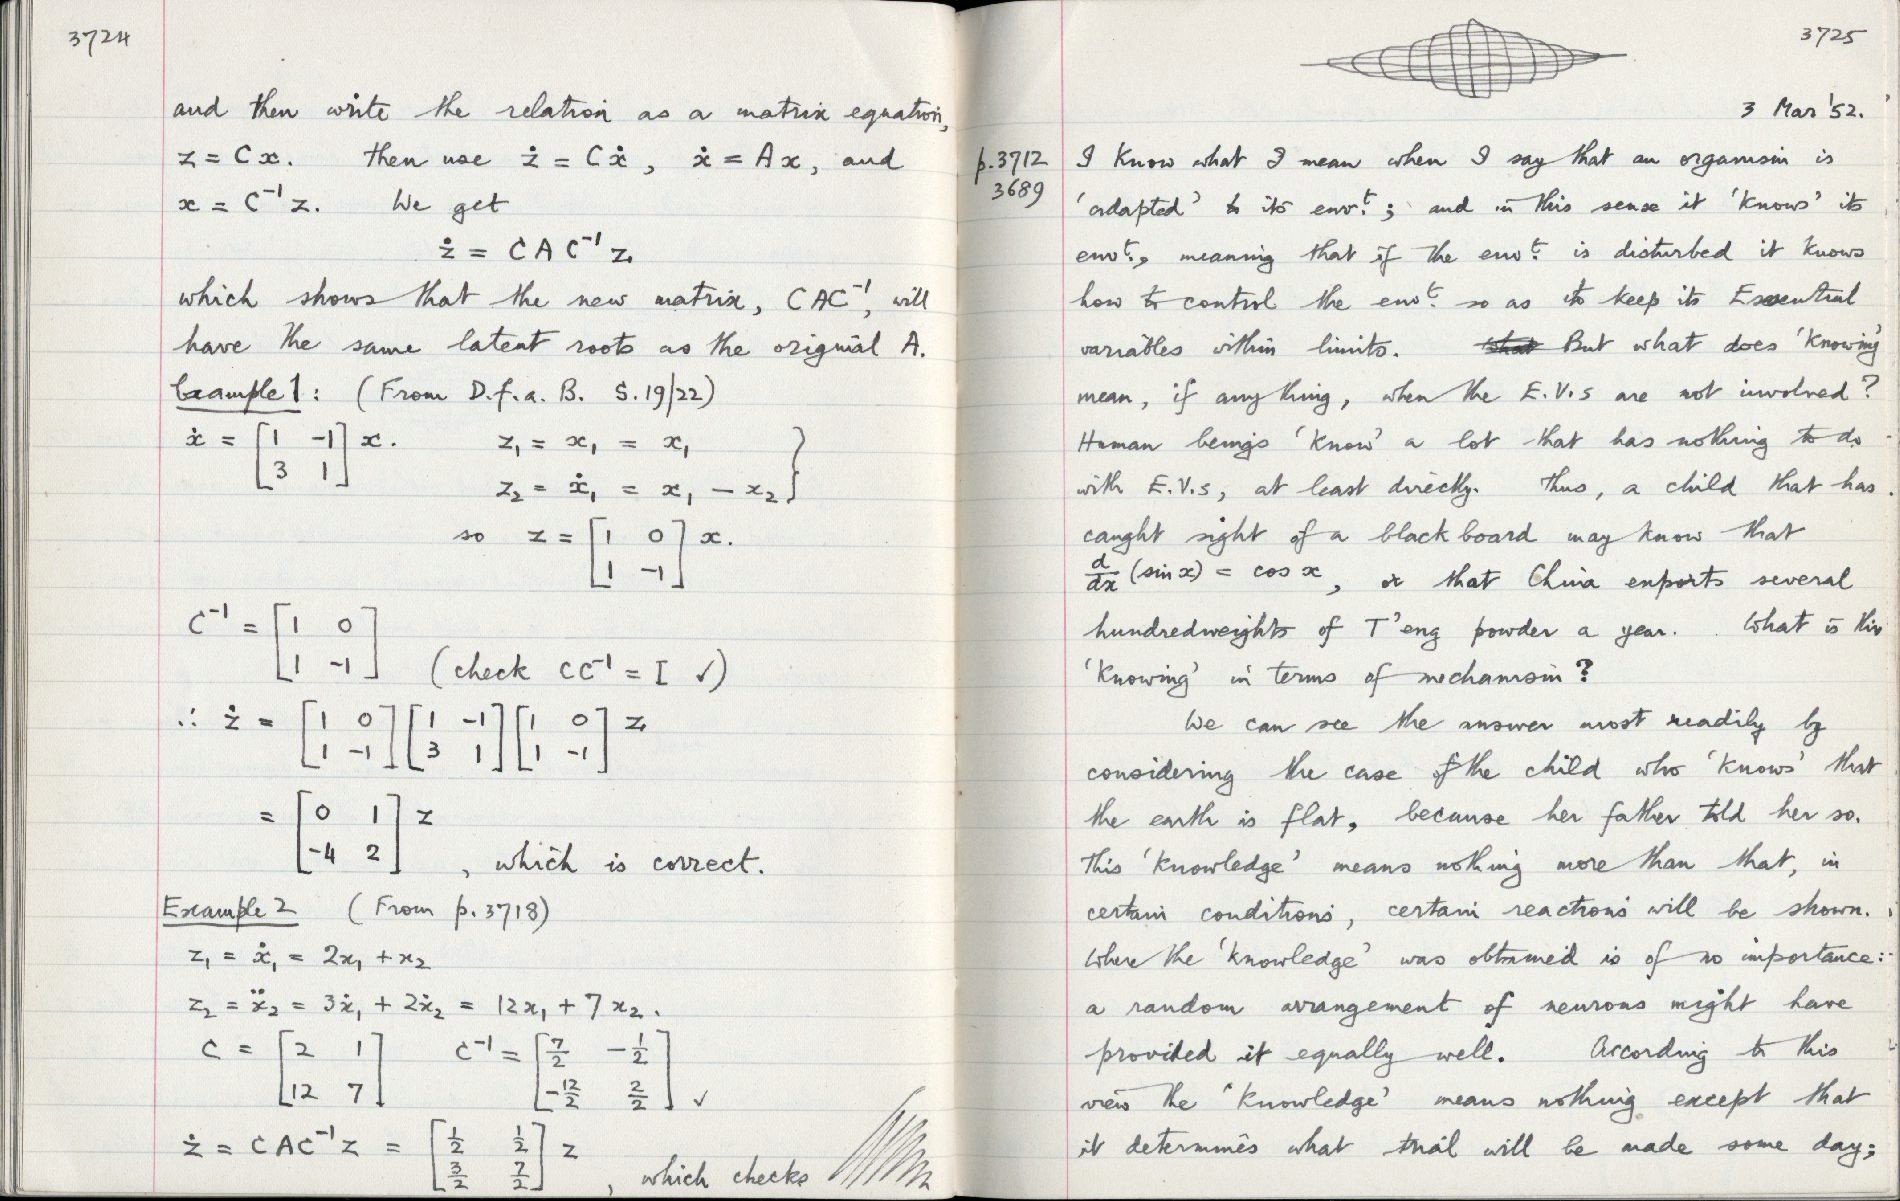 3724
and then write the relation as a matrix equation,
z = Cx. Then use ż = Cẋ, ẋ = Ax, and
x = C⁻¹z. We get
ż = CAC⁻¹z,
which shows that the new matrix, CAC⁻¹, will
have the same latent roots as the original A.
Example 1: (From D.f.a.B. S.19/22)
ẋ = [1 -1; 3 1] x. z₁ = x₁ = x₁
z₂ = ẋ₁ = x₁ - x₂ }
so z = [1 0; 1 -1] x.
C⁻¹ = [1 0; 1 -1] (check CC⁻¹ = I ✓)
∴ ż = [1 0; 1 -1] [1 -1; 3 1] [1 0; 1 -1] z
= [0 1; -4 2] z, which is correct.
Example 2 (From p.3718)
z₁ = ẋ₁ = 2x₁ + x₂
z₂ = ẍ₂ = 3ẋ₁ + 2ẋ₂ = 12x₁ + 7x₂.
C = [2 1; 12 7] C⁻¹ = [7/2 -1/2; -12/2 2/2] ✓
ż = CAC⁻¹z = [1/2 1/2; 3/2 7/2] z, which checks
3725
3 Mar '52.
p.3712
3689
I know what I mean when I say that an organism is
'adapted' to its envt.; and in this sense it 'knows' its
envt., meaning that if the envt. is disturbed it knows
how to control the envt. so as to keep its Essential
variables within limits. But what does 'knowing'
mean, if anything, when the E.V.s are not involved?
Human beings 'know' a lot that has nothing to do
with E.V.s, at least directly. Thus, a child that has
caught sight of a blackboard may know that
d/dx (sin x) = cos x, or that China exports several
hundredweights of T'eng powder a year. What is this
'knowing' in terms of mechanism?
We can see the answer most readily by
considering the case of the child who 'knows' that
the earth is flat, because her father told her so.
This 'knowledge' means nothing more than that, in
certain conditions, certain reactions will be shown.
Where the 'knowledge' was obtained is of no importance:
a random arrangement of neurons might have
provided it equally well. According to this
view the 'knowledge' means nothing except that
it determines what trial will be made some day;